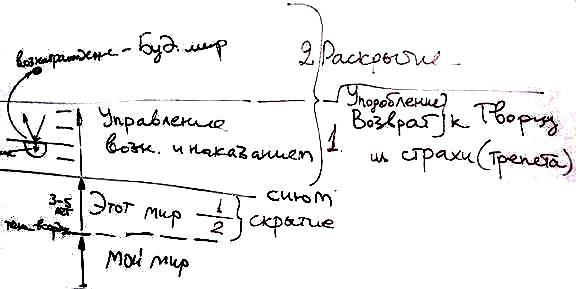 вознаграждение - Буд. мир
2 Раскрытие
Уподобление
Возврат к Творцу
1. из страха (трепета)
Управление
возн. и наказанием
3-5 лет
Этот мир 1/2 скрытие
сиюм
Мой мир